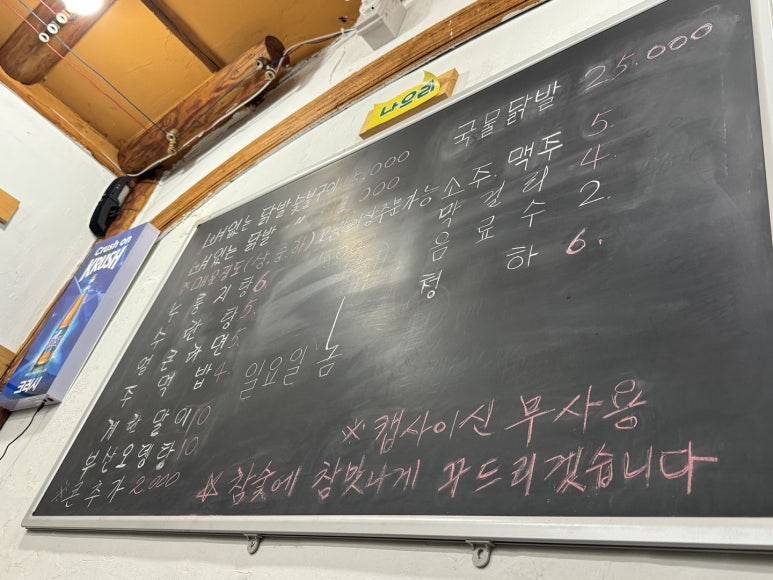 나으리
Crush on
KRUSH
크러시
뼈있는 닭발 숯불구이
뼈있는 닭발 〃
※매운정도(상,중,하)
누룽지탕 6
수란탕 5.
얼큰라면 5.
주먹밥 4.
계란말이 10
부산오뎅탕 10
※콘추가 2.000
국물닭발 25.000
소주. 맥주 5.
막걸리 4.
음료수 2.
청하 6.
일요일 놈
※ 캡사이신 무사용
※ 참숯에 참맛나게 꾸드리겠습니다